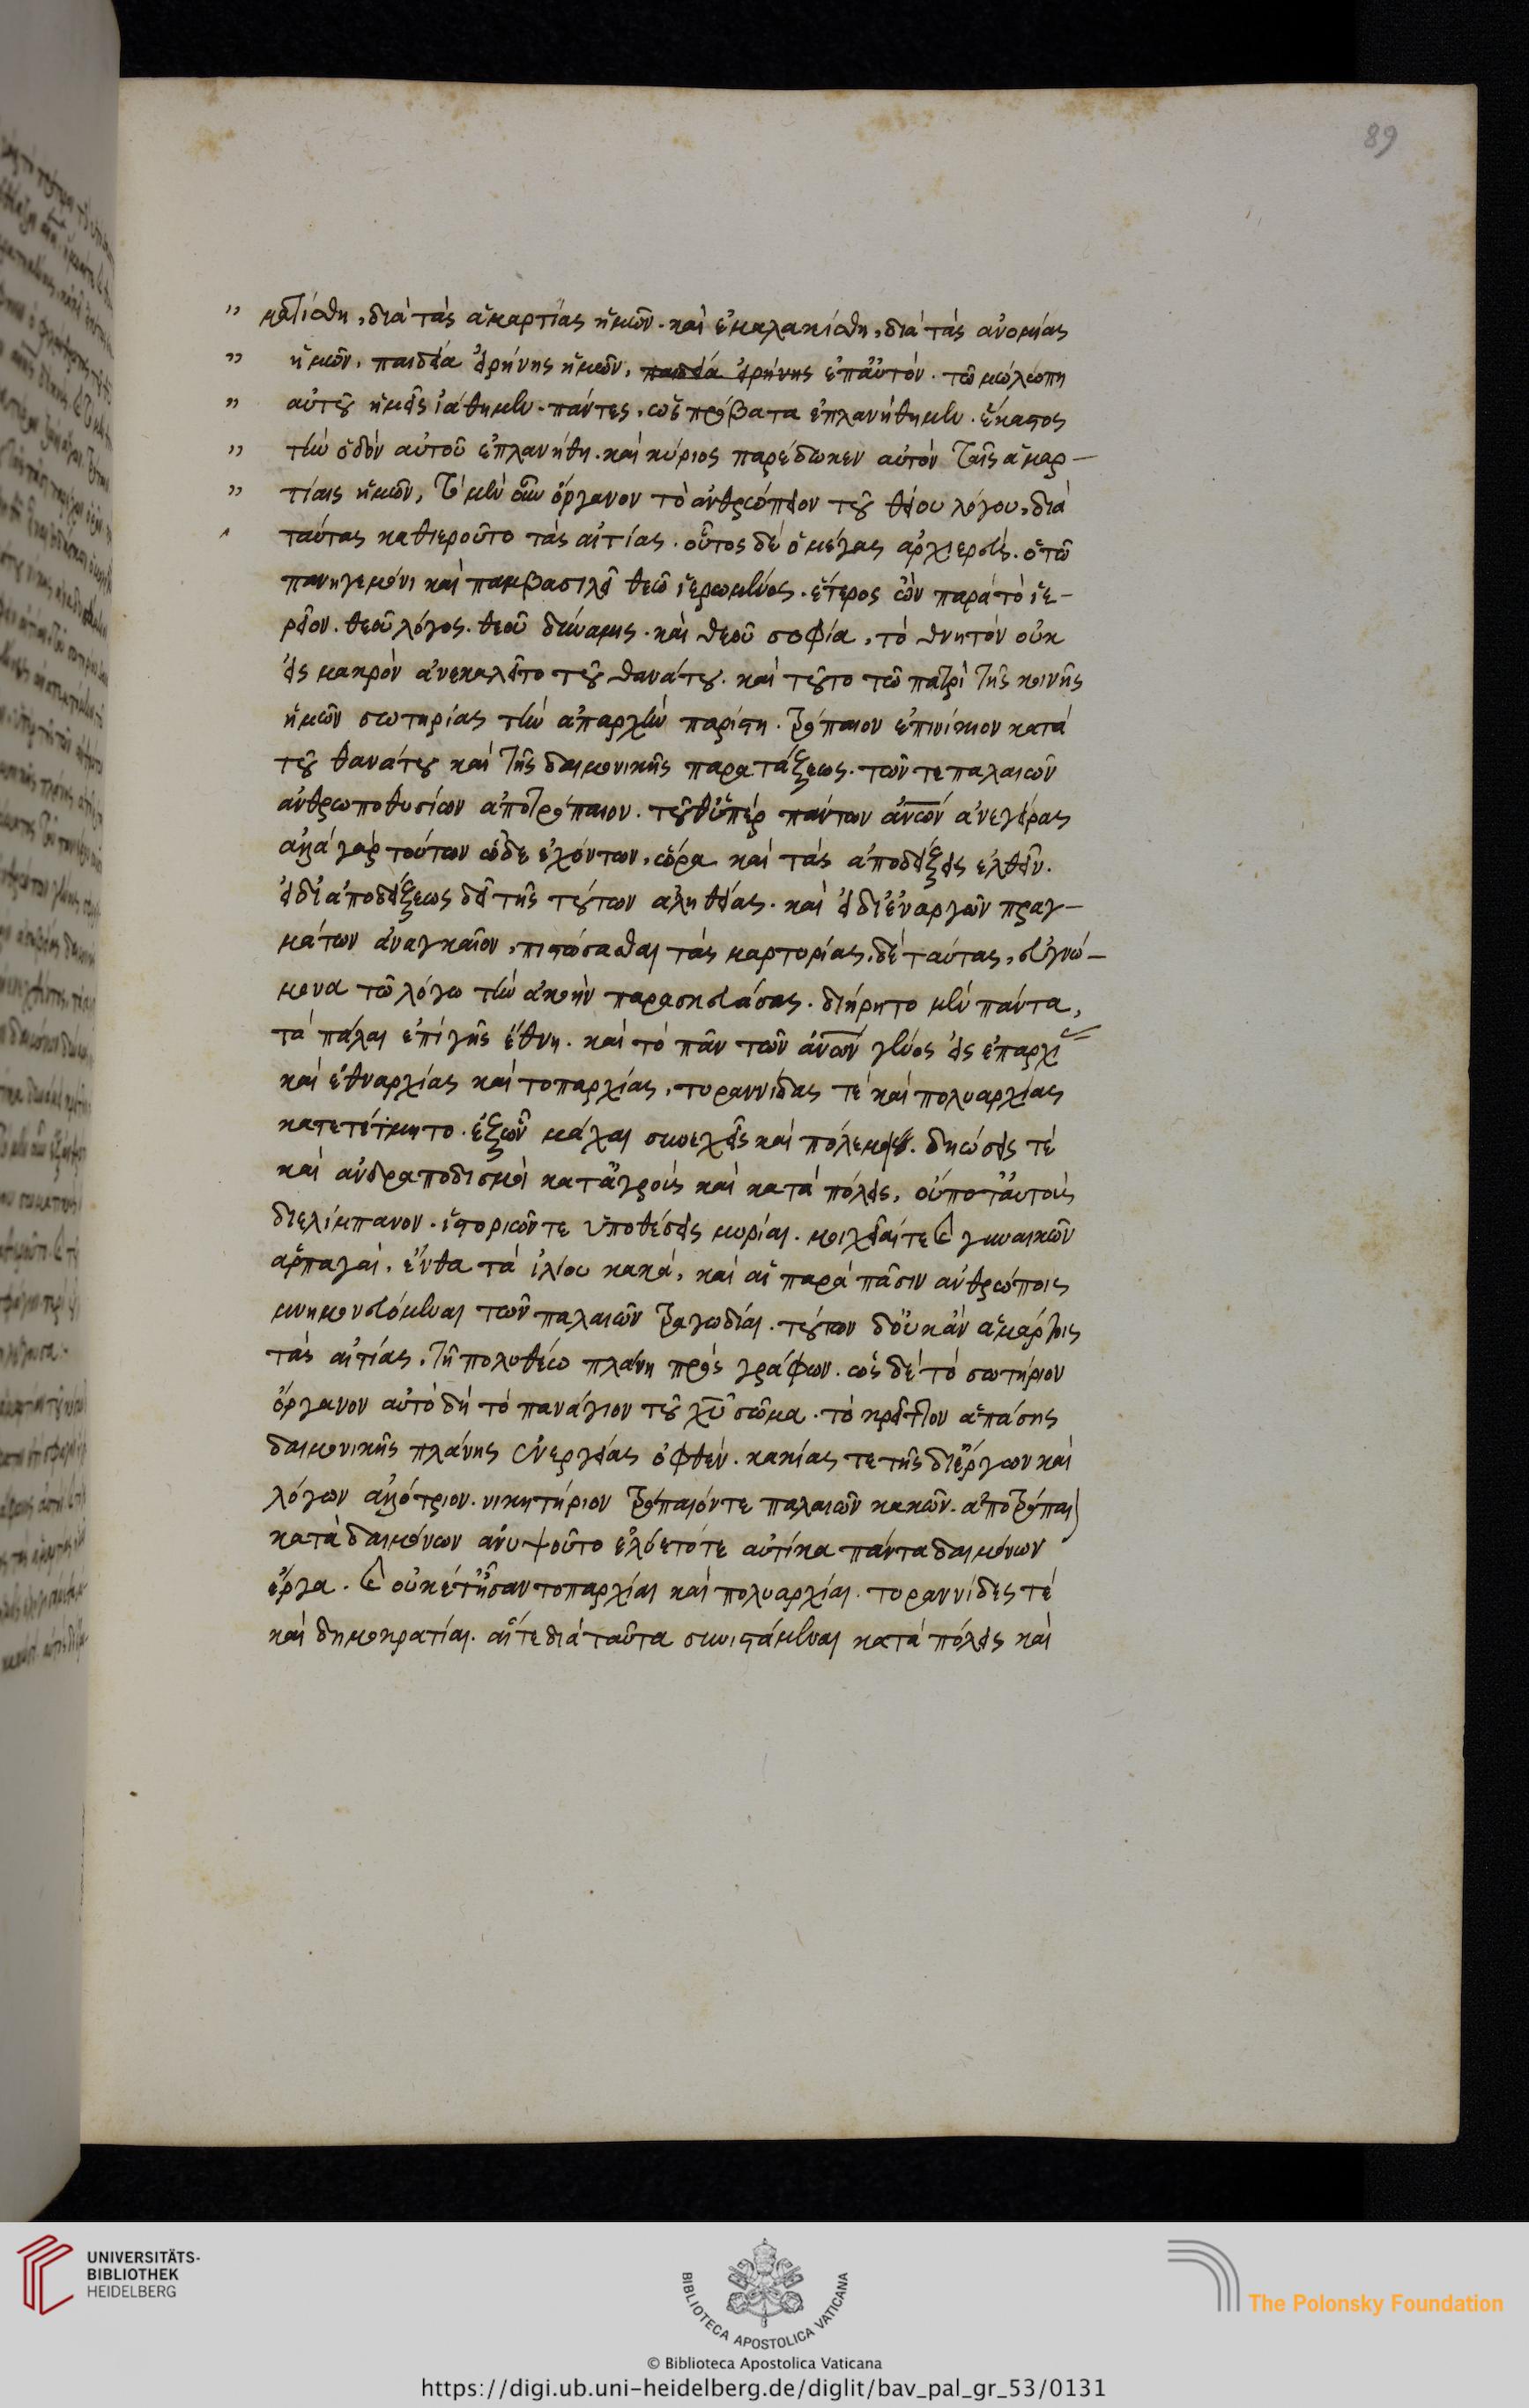 89
ματίσθη, διὰ τὰς ἁμαρτίας ἡμῶν. καὶ ἐμαλακίσθη, διὰ τὰς ἀνομίας
ἡμῶν. παιδεία εἰρήνης ἡμῶν, παιδεία εἰρήνης ἐπ' αὐτόν. τῶ μώλωπι
αὐτοῦ ἡμεῖς ἰάθημεν. πάντες, ὡς πρόβατα ἐπλανήθημεν. ἕκαστος
τὴν ὁδὸν αὐτοῦ ἐπλανήθη. καὶ κύριος παρέδωκεν αὐτὸν ταῖς ἁμαρ-
τίαις ἡμῶν, τὸ μὲν οὖν ὄργανον τὸ ἀνθρώπειον τοῦ θείου λόγου, διὰ
ταύτας καθιεροῦτο τὰς αἰτίας. οὗτος δὲ ὁ μέγας ἀρχιερεύς. ὁ τῶ
πανηγεμόνι καὶ παμβασιλεῖ θεῶ ἱερωμένος. ἕτερος ὢν παρὰ τὸ ἱε-
ρεῖον. θεοῦ λόγος. θεοῦ δύναμις. καὶ θεοῦ σοφία, τὸ θνητὸν οὐκ
εἰς μακρὸν ἀνεκαλεῖτο τοῦ θανάτου. καὶ τοῦτο τῶ πατρὶ τῆς κοινῆς
ἡμῶν σωτηρίας τὴν ἀπαρχὴν παρίστη. τρόπαιον ἐπινίκιον κατὰ
τοῦ θανάτου καὶ τῆς δαιμονικῆς παρατάξεως. τῶν τε παλαιῶν
ἀνθρωποθυσίων ἀποτρόπαιον. τοῦθ' ὑπὲρ πάντων ἀνων ἀνεγείρας
ἀλλὰ γὰρ τούτων ὧδε ἐχόντων, ὥρα καὶ τὰς ἀποδείξεις ἐλθεῖν.
εἰ δὴ ἀποδείξεως δεῖ τῆς τούτων ἀληθείας. καὶ εἰ δι' ἐναργῶν πραγ-
μάτων ἀναγκαῖον, πιστώσασθαι τὰς μαρτυρίας. δὲ ταύτας, εὐγνώ-
μονα τῶ λόγω τὴν ἀκοὴν παρασκευάσας. διήρητο μὲν πάντα,
τὰ πάλαι ἐπὶ γῆς ἔθνη. καὶ τὸ πᾶν τῶν ἀνων γένος εἰς ἐπαρχί
καὶ ἐθναρχίας καὶ τοπαρχίας, τυραννίδας τὲ καὶ πολυαρχίας
κατετέτμητο. ἐξ ὧν μάχαι συνεχεῖς καὶ πόλεμοι. δηώσεις τὲ
καὶ ἀνδραποδισμοὶ κατ' ἀγροὺς καὶ κατὰ πόλεις, οὔποτ' αὐτοὺς
διελίμπανον. ἱστορικῶν τε ὑποθέσεις μυρίαι. μοιχεῖαί τε καὶ γυναικῶν
ἁρπαγαί. ἔνθα τὰ ἰλίου κακά, καὶ αἱ παρὰ πᾶσιν ἀνθρώποις
μνημονευόμεναι τῶν παλαιῶν τραγωδίαι. τούτων δ' οὐκ ἂν ἁμάρτοις
τὰς αἰτίας, τῆ πολυθέω πλάνη προσγράφων. ὡς δὲ τὸ σωτήριον
ὄργανον αὐτὸ δὴ τὸ πανάγιον τοῦ χυ σῶμα. τὸ κρεῖττον ἁπάσης
δαιμονικῆς πλάνης ἐνεργείας ὀφθέν. κακίας τε τῆς δι' ἔργων καὶ
λόγων ἀλλότριον. νικητήριον τρόπαιόν τε παλαιῶν κακῶν. ἀποτρόπαι
κατὰ δαιμόνων ἀνυψοῦτο ἐλύετό τε αὐτίκα πάντα δαιμόνων
ἔργα. καὶ οὐκέτ' ἦσαν τοπαρχίαι καὶ πολυαρχίαι. τυραννίδες τὲ
καὶ δημοκρατίαι. αἵ τε διὰ ταῦτα συνιστάμεναι κατὰ πόλεις καὶ
UNIVERSITÄTS-
BIBLIOTHEK
HEIDELBERG
BIBLIOTECA APOSTOLICA VATICANA
The Polonsky Foundation
© Biblioteca Apostolica Vaticana
https://digi.ub.uni-heidelberg.de/diglit/bav_pal_gr_53/0131